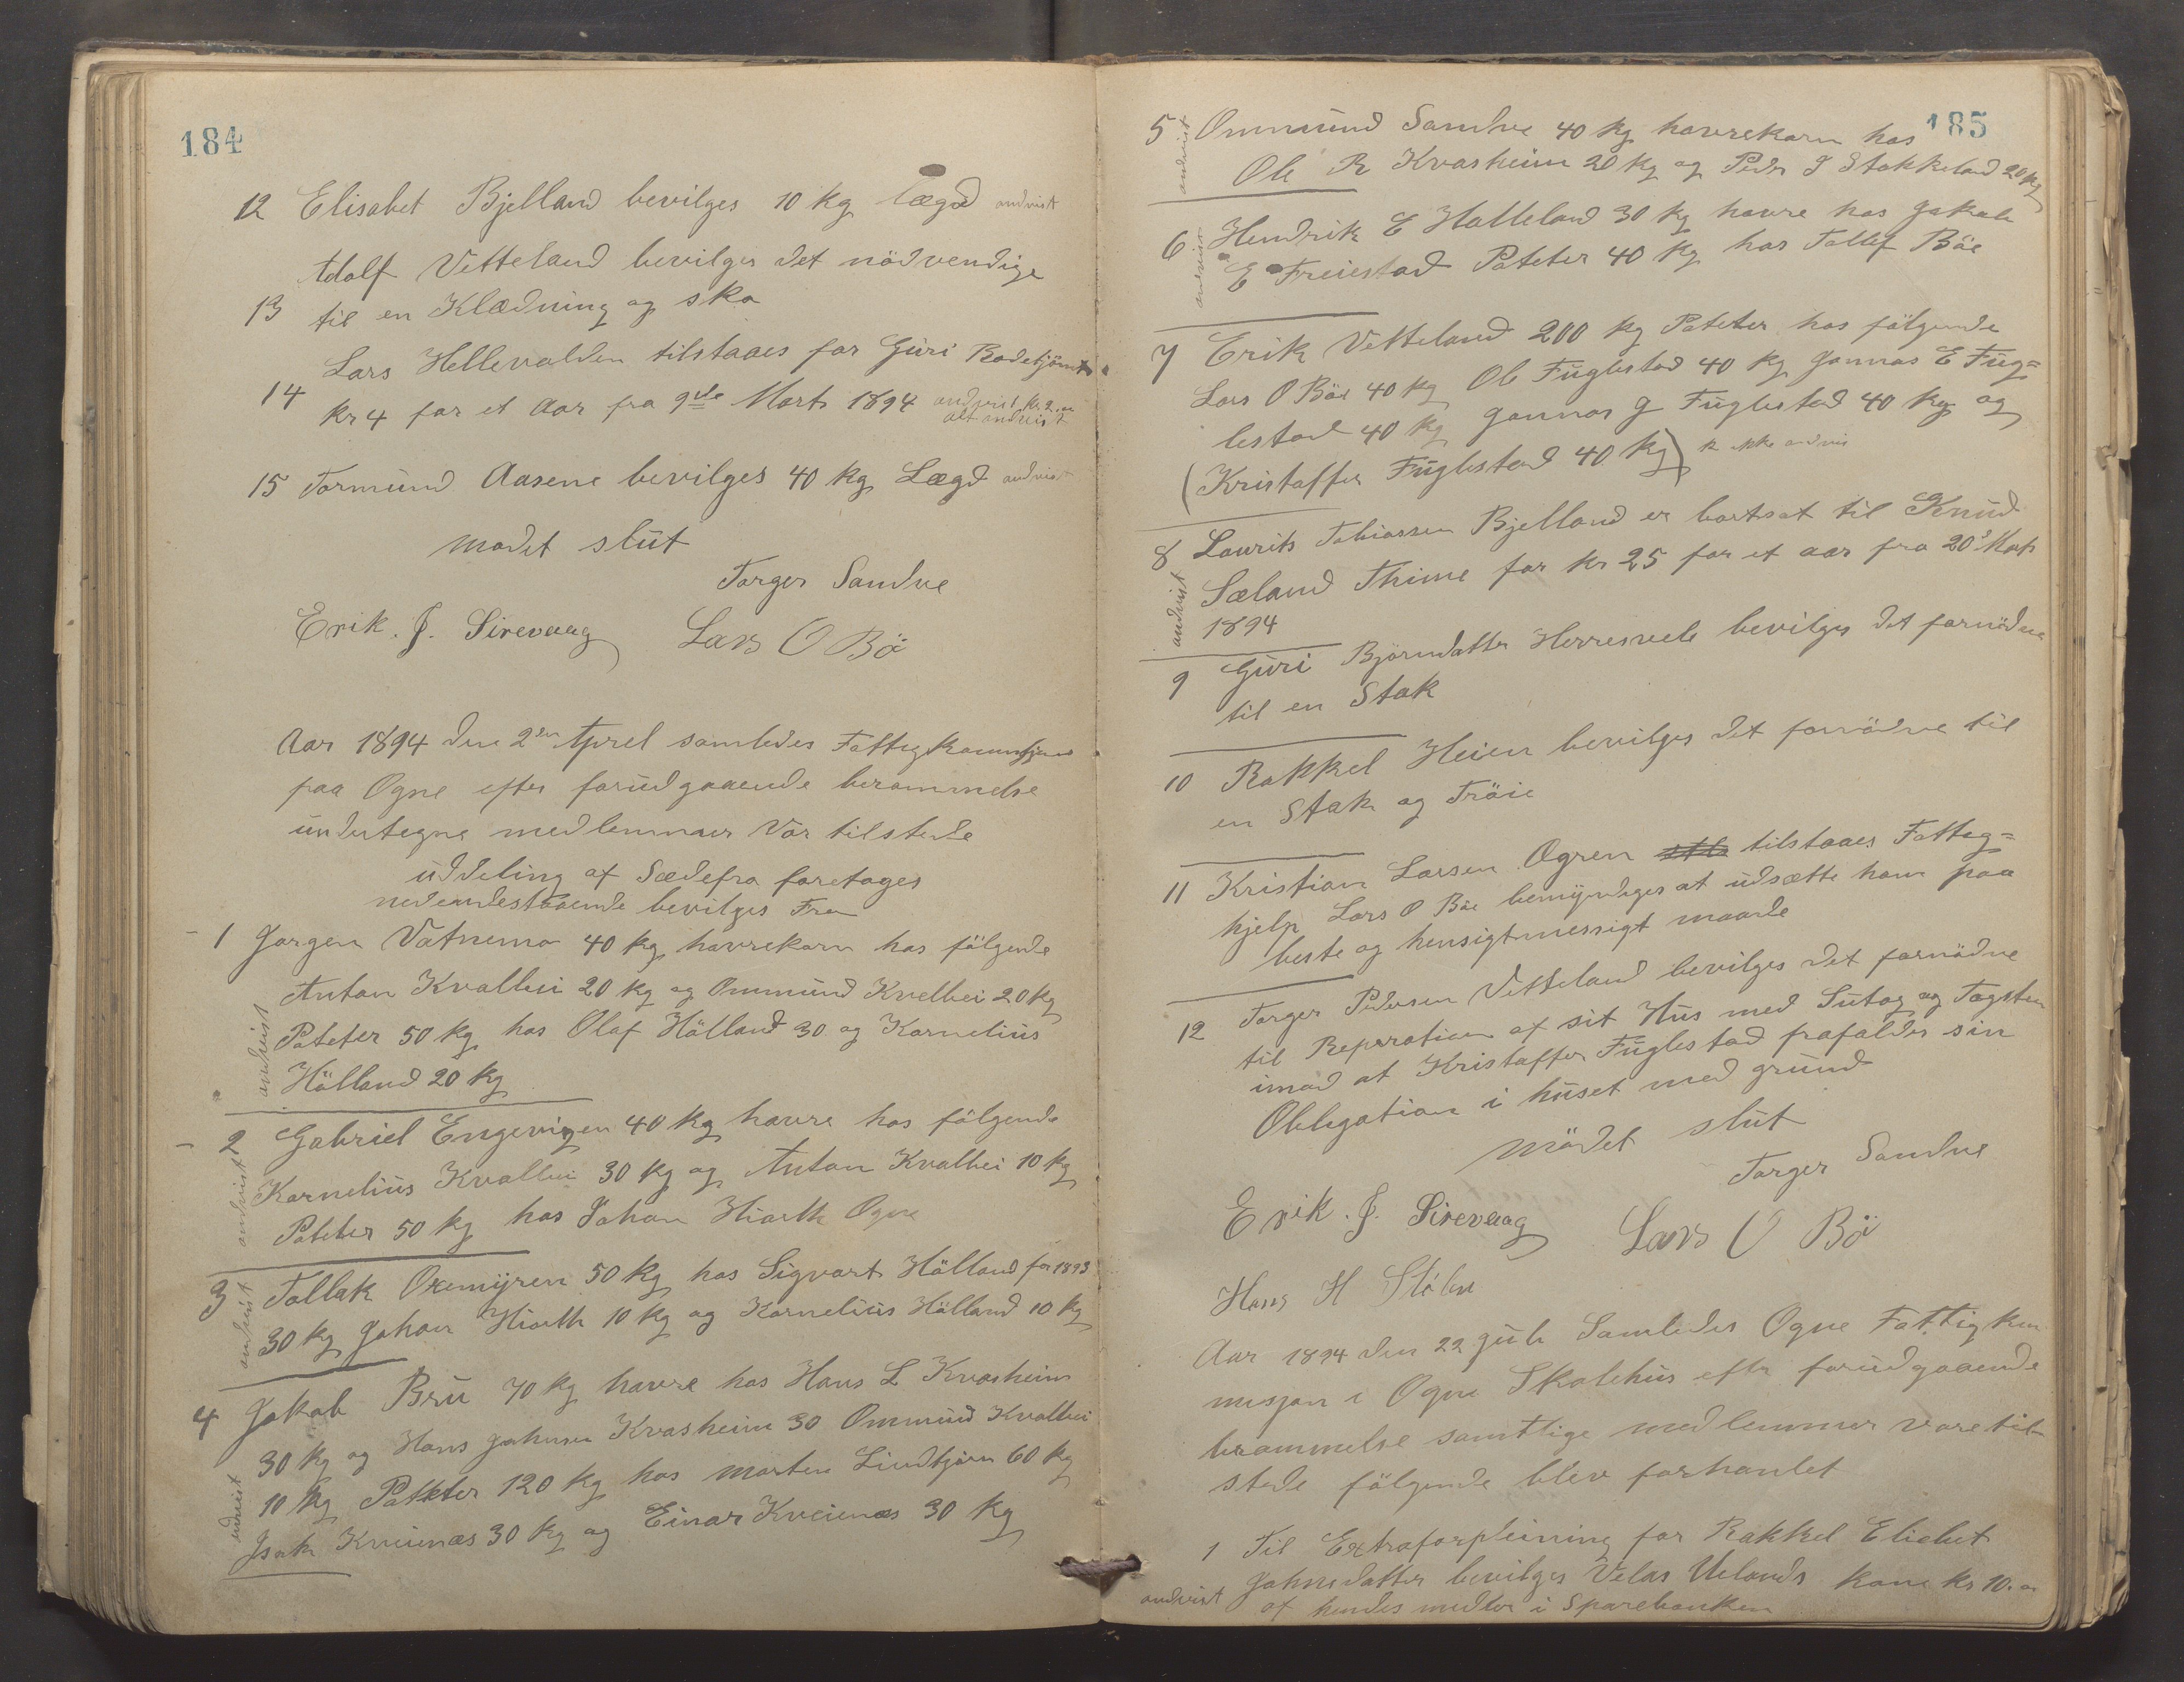 184
12 Elisabet Bjelland bevilges 10 kg Lægd andvist
Adolf Vetteland bevilges det nödvendige
13 til en Klædning og sko
Lars Hellevalden tilstaaes for Guri Rodetjömt
14 kr 4 for et Aar fra 9de Marts 1894 andvist kr 2
alt andvist
15 Tormund Aasene bevilges 40 kg Lægd andvist
mødet slut
Torger Sandve
Erik. J. Sirevaag Lars O Bö
Aar 1894 den 2den Aprel samledes Fattigkommisjonen
paa Ogne efter forudgaaende berammelse
undertegne medlemmer var tilstede
uddeling af Sædefrø foretages
nedenstaaende bevilges Frø
1 Jørgen Vatnemo 40 kg havrekorn hos fölgende
Anton Kvalbei 20 kg og Ommund Kvelbei 20 kg
Poteter 50 kg hos Olaf Hölland 30 og Kornelius
Hölland 20 kg
andvist
2 Gabriel Engevigen 40 kg havre hos fölgende
Kornelius Kvalbei 30 kg og Anton Kvalbei 10 kg
Poteter 50 kg hos Johan Hiorth Ogne
andvist
3 Tollak Oremyren 50 kg hos Sigvart Hölland for 1893
30 kg Johan Hiorth 10 kg og Kornelius Hölland 10 kg
andvist
4 Jakob Bru 70 kg havre hos Hans L Kvasheim
30 kg og Hans Johnsen Kvasheim 30 Ommund Kvalbei
10 kg Poteter 120 kg hos Morten Lindtjörn 60 kg
Isak Kveienæs 30 kg og Einar Kveienæs 30 kg
andvist
185
5 Ommund Sandve 40 kg havrekorn hos
Ole R Kvasheim 20 kg og Peder J Stokkeland 20 kg
andvist
6 Hendrik E Halleland 30 kg havre hos Jakob
E Freiestad Poteter 40 kg hos Tollef Böe
andvist
7 Erik Vetteland 200 kg Poteter hos fölgende
Lars O Böe 40 kg Ole Fuglestad 40 kg Jonnas E Fug=
lestad 40 kg Jonnas J Fuglestad 40 kg og
(Kristoffer Fuglestad 40 kg) ikke andvis
8 Laurits Tobiassen Bjelland er bortsat til Knud
Sæland Thime for kr 25 for et aar fra 20de Marts
1894
andvist
9 Guri Björnsdatter Herresvele bevilges det fornödne
til en Stak
10 Rakkel Heien bevilges det fornödne til
en Stak og Tröie
11 Kristian Larsen Ogren tilstaaes Fatteg=
hjelp Lars O Böe bemyndiges at udsætte ham paa
beste og hensigtmessigt maade
12 Torger Pedersen Vetteland bevilges det fornödne
til Reperation af sit Hus med Sutag og Tagsten
imod at Kristoffer Fuglestad frafalder sin
Obligation i huset med grund
mödet slut
Torger Sandve
Erik. J. Sirevaag Lars O Bö
Hans H Stölen
Aar 1894 den 22 Juli Samledes Ogne Fattigkom
misjon i Ogne Skolehus efter forudgaaende
berammelse samtlige medlemmer vare til-
stede fölgende blev forhanlet
1 Til Extraforpleining for Rakkel Eliebet
Johnsdatter bevilges Velas Uelands kone kr 10.
andvist af hendes medler i Sparebanken